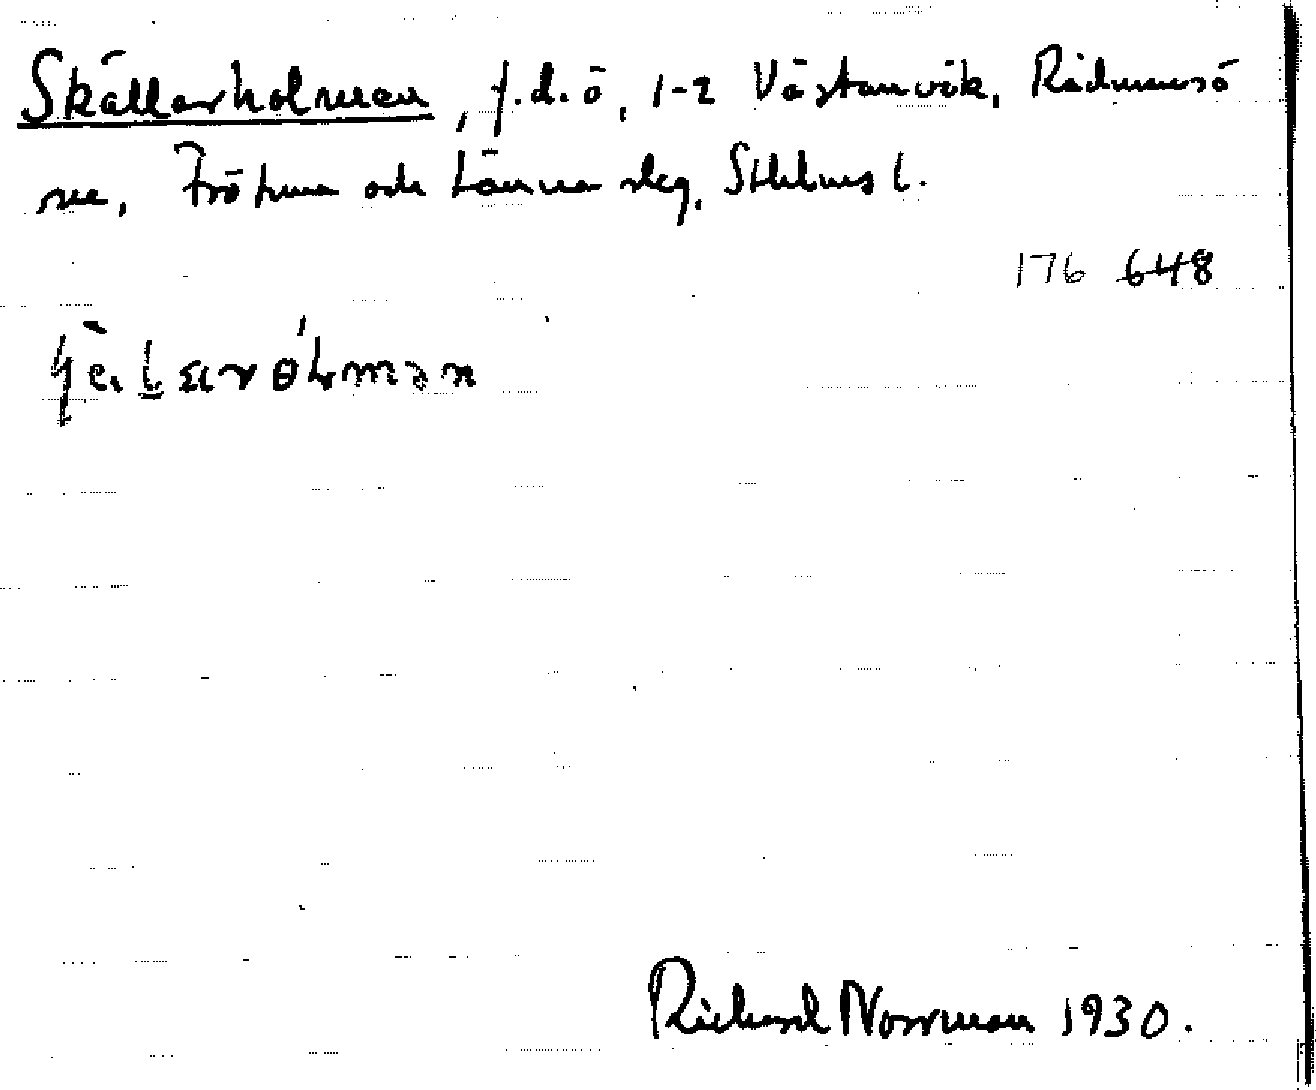 Skällarholmen, f.d. ö, 1-2 Västanvik, Rådmansö
sn, Frötuna och Länna skg, Sthlms l.
176 648
Richard Norrman 1930.